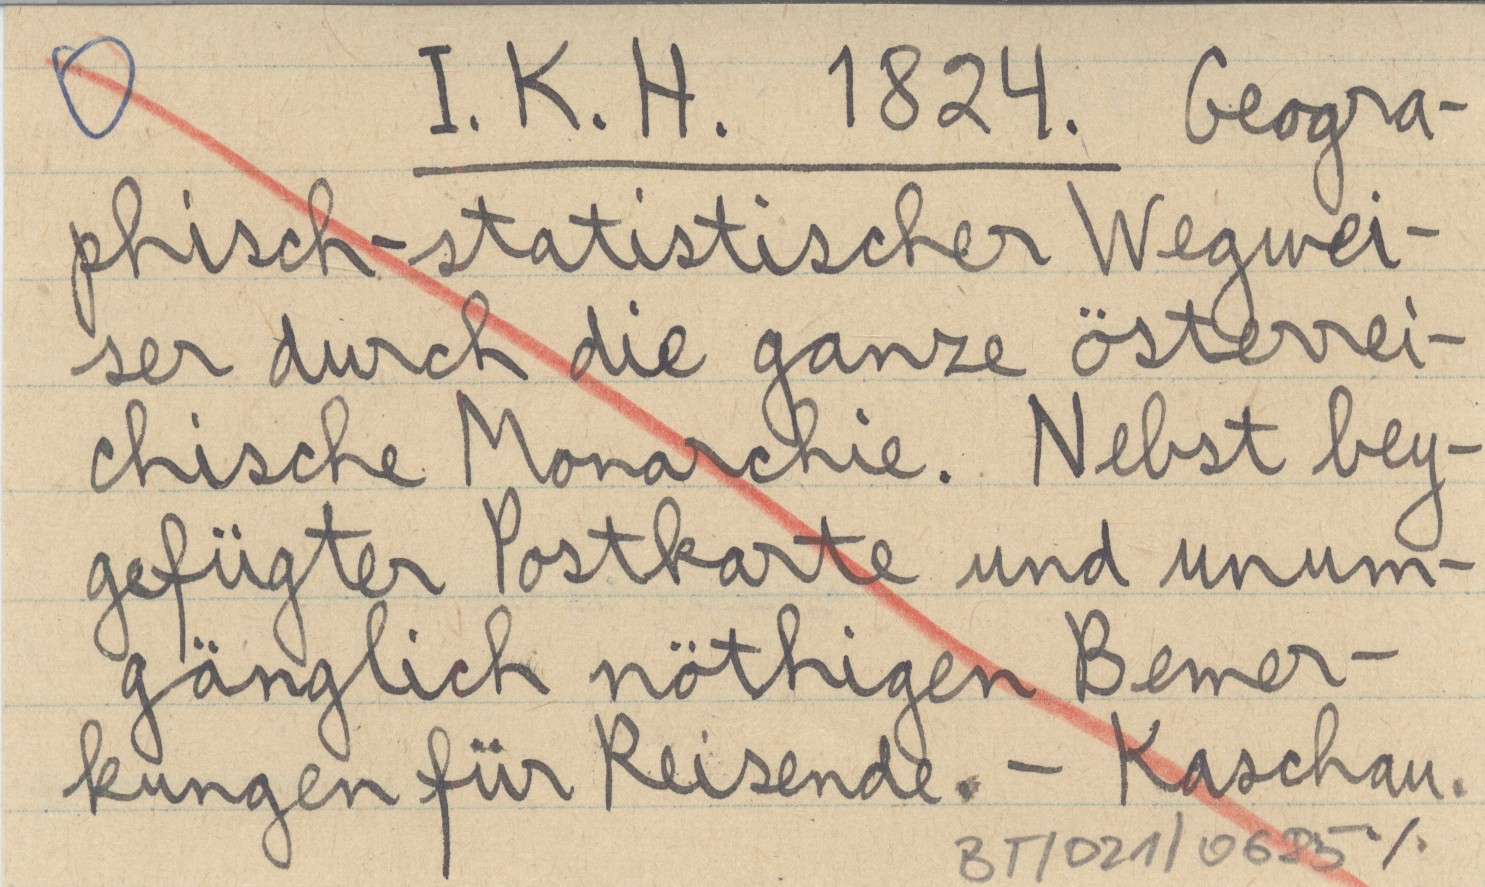 I. K. H. 1824. Geogra-
phisch-statistischer Wegwei-
ser durch die ganze österrei-
chische Monarchie. Nebst bey-
gefügter Postkarte und unum-
gänglich nöthigen Bemer-
kungen für Reisende. – Kaschau.
BT/021/0685 ./.